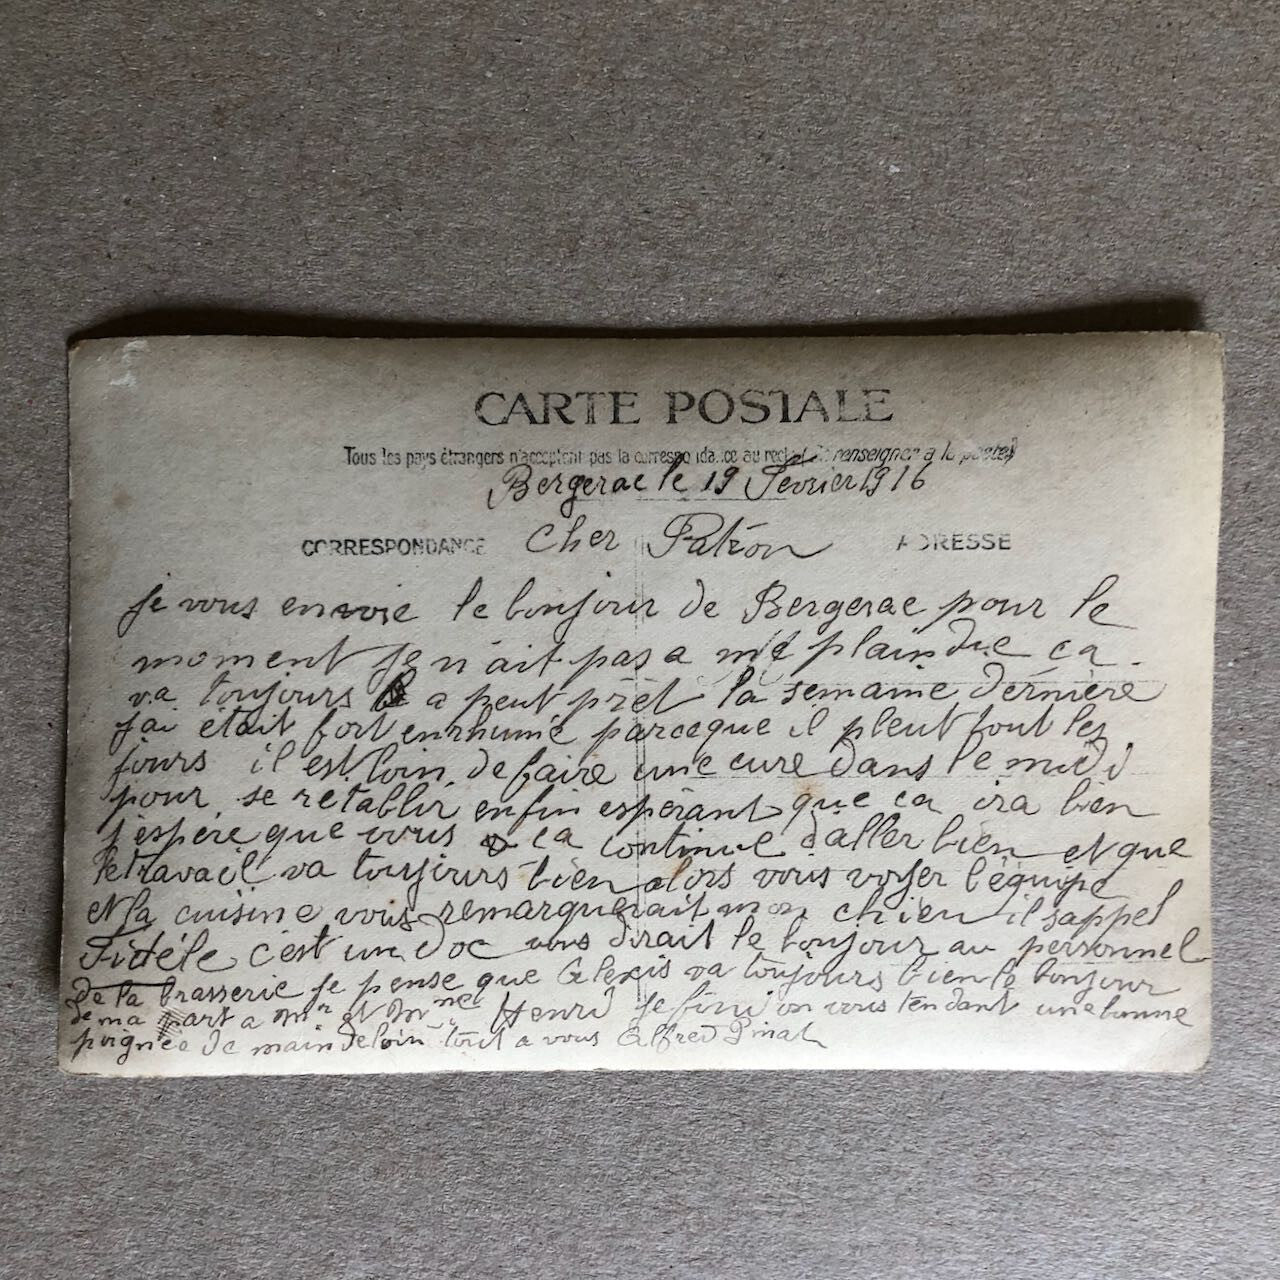 CARTE POSTALE
Tous les pays étrangers n'acceptent pas la correspondance au recto (se renseigner à la poste)
Bergerac le 19 Fevrier 1916
CORRESPONDANCE
Cher Patron
ADRESSE
Je vous envoie le bonjour de Bergerac pour le
moment je n'ait pas a me plaindre ça
va toujours a peut prèt la semaine dernière
j'ai était fort enrhumé parceque il pleut tout les
jours il est loin de faire une cure dans le midi
pour se retablir enfin espérant que ca ira bien
j'espère que vous ca continue d'aller bien et que
le travail va toujours bien alors vous voyer l'équipe
et la cuisine vous remarquerait mon chien il s'appel
Fidéle c'est un doc vous dirait le bonjour au personnel
de la brasserie je pense que Alexis va toujours bien le bonjour
de ma part a Mr et Mme Henri je fini en vous tendant une bonne
poignée de main de loin tout a vous Alfred Pinat